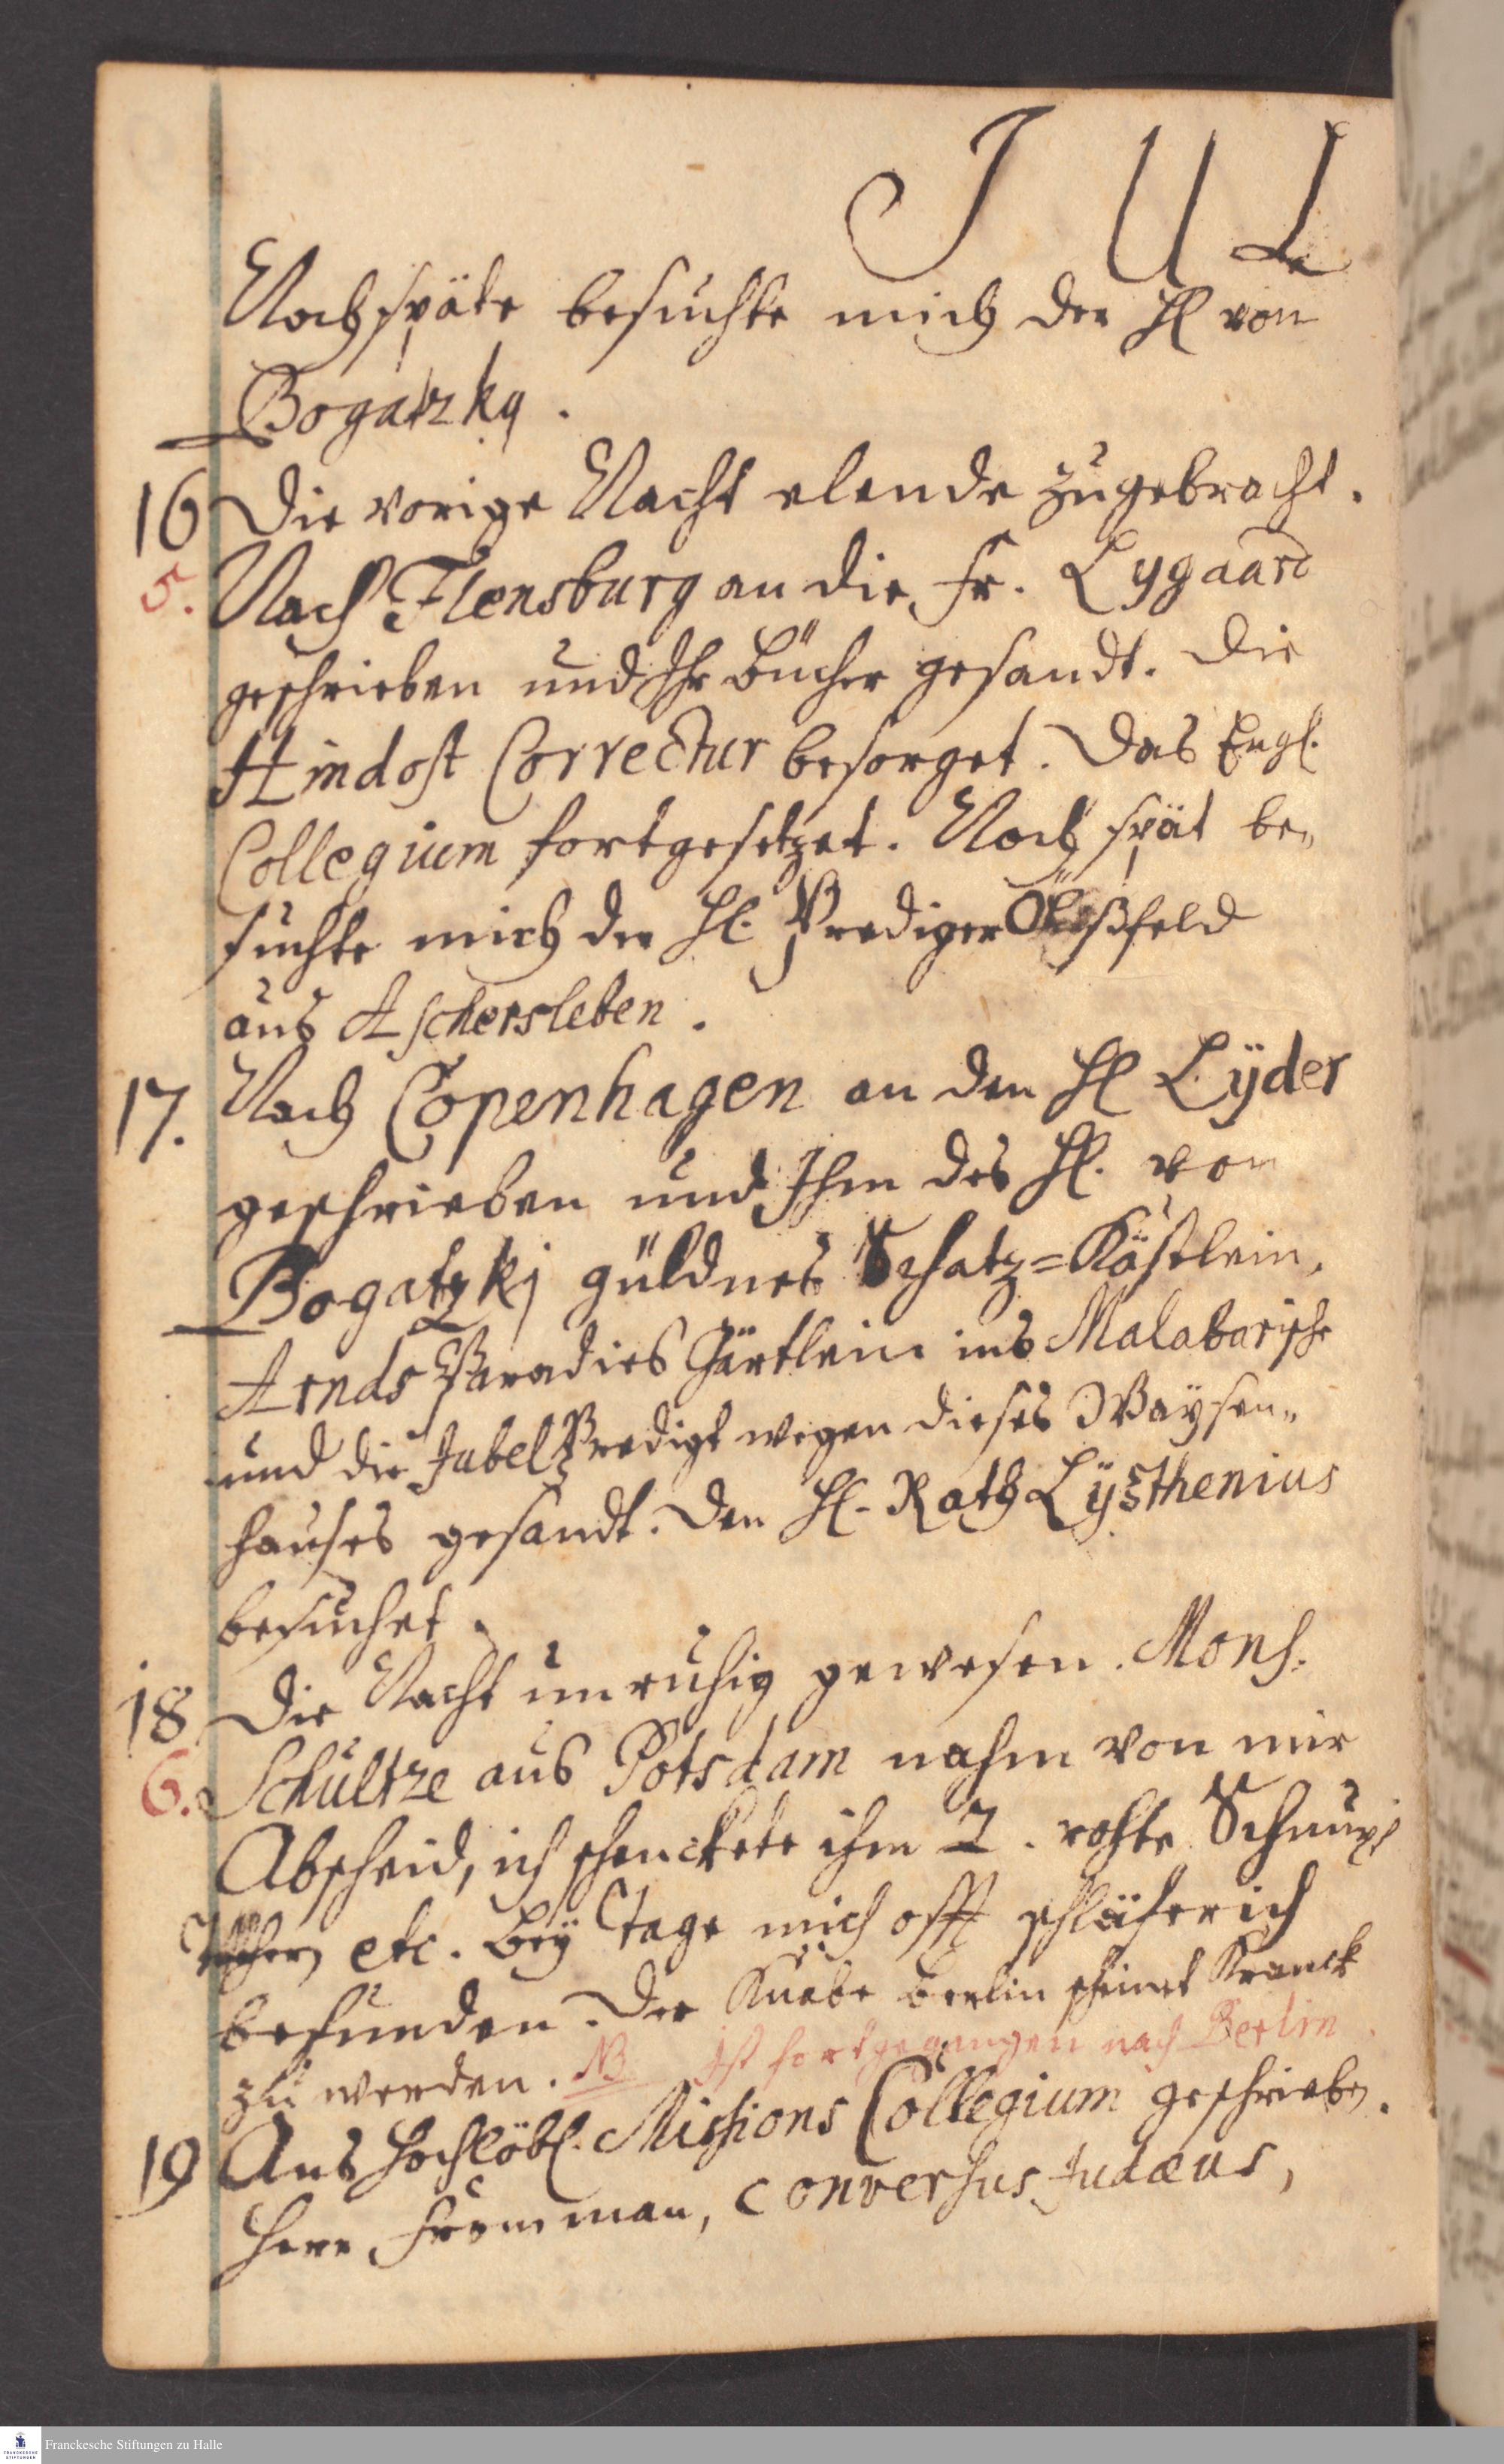 J U L
Noch späte besuchte mich der Hl von
Bogatzky.
16 Die vorige Nacht elende zugebracht.
5. Nach Flensburg an die Fr. Lygaard
geschrieben und Ihr Bücher gesandt. Die
Hindost Correctur besorget. Das Engl.
Collegium fortgesetzet. Noch spät be„
suchte mich der Hl. Prediger
aus Aschersleben.
17. Nach Copenhagen an den Hl Lÿder
geschrieben und Ihm des Hl. von
Bogatzkj güldnes Schatz=Kästlein,
Arnds Paradies Gärtlein ins Malabarische
und die Jubel Predigt wegen dieses Waysen„
hauses gesandt. Den Hl. Rath Lÿsthenius
besuchet.
18 Die Nacht unruhig gewesen. Mons.
6. Schultze aus Potsdam nahm von mir
Abscheid, ich schenckete ihm 2. rohte Schnupf
Tücher etc. Beÿ Tage mich offt schläferich
befunden. Der Knabe Berlin scheint Kranck
zu werden. NB Ist fortgegangen nach Berlin.
19 Ans Hochlöbl. Missions Collegium geschrieben.
Herr Fromman, Conversus Judæus,
Franckesche Stiftungen zu Halle